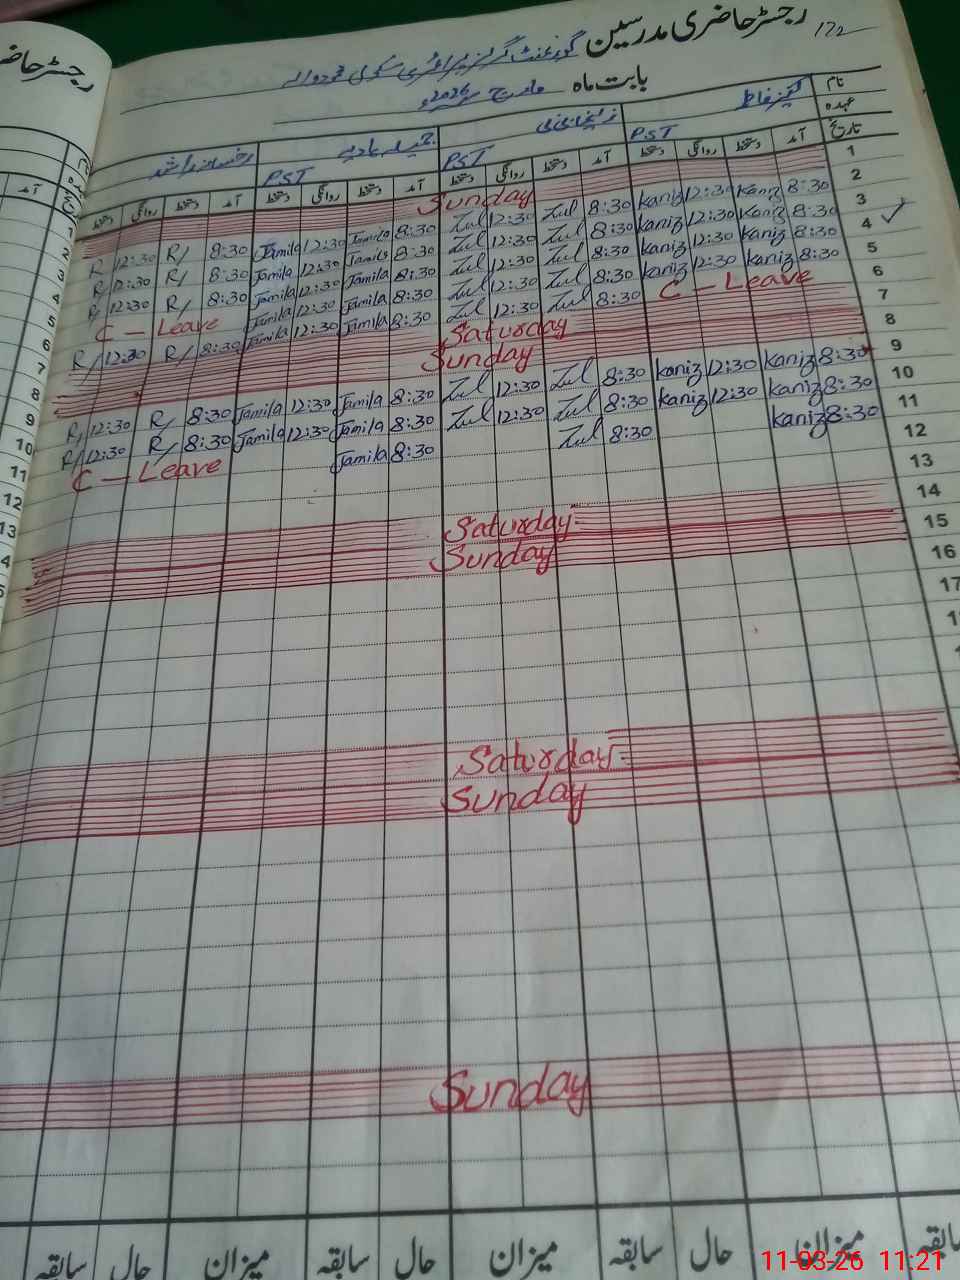 رجسٹر حاضری مدرسین 172
گورنمنٹ گرلز پرائمری سکول
بابت ماہ مارچ 2026ء
نام کنیز فاطمہ زلیخا بی بی جمیلہ
عہدہ PST PST PST
تاریخ آمد دستخط روانگی دستخط آمد دستخط روانگی دستخط آمد دستخط روانگی دستخط آمد دستخط روانگی دستخط
1 Sunday
2 8:30 Kaniz 12:30 Kaniz 8:30 Zul 12:30 Zul 8:30 Jamila 12:30 Jamila 8:30 R/ 12:30 R/
3 8:30 Kaniz 12:30 Kaniz 8:30 Zul 12:30 Zul 8:30 Jamila 12:30 Jamila 8:30 R/ 12:30 R/
4 8:30 Kaniz 12:30 Kaniz 8:30 Zul 12:30 Zul 8:30 Jamila 12:30 Jamila 8:30 R/ 12:30 R/
5 8:30 Kaniz 12:30 Kaniz 8:30 Zul 12:30 Zul 8:30 Jamila 12:30 Jamila C - Leave
6 C - Leave 8:30 Zul 12:30 Zul 8:30 Jamila 12:30 Jamila 8:30 R/ 12:30 R/
7 Saturday
8 Sunday
9 8:30 Kaniz 12:30 Kaniz 8:30 Zul 12:30 Zul 8:30 Jamila 12:30 Jamila 8:30 R/ 12:30 R/
10 8:30 Kaniz 12:30 Kaniz 8:30 Zul 12:30 Zul 8:30 Jamila 12:30 Jamila 8:30 R/ 12:30 R/
11 8:30 Kaniz 8:30 Zul 8:30 Jamila C - Leave
12
13
14 Saturday
15 Sunday
16
17
Saturday
Sunday
Sunday
سابقہ میزان حال سابقہ میزان حال سابقہ میزان حال سابقہ
11-03-26 11:21